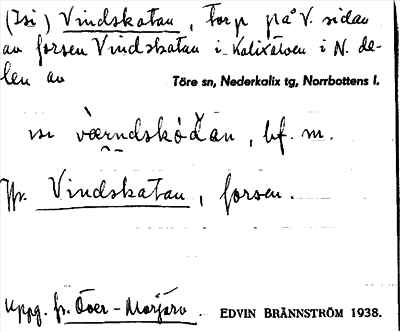 (Isi) Vindskatan, torp på V. sidan
av forsen Vindskatan i Kalixälven i N. de-
len av Töre sn, Nederkalix tg, Norrbottens l.
isi værndskòdan, bf. m.
Jfr. Vindskatan, forsen.
Uppg. fr. Över-Morjärv. EDVIN BRÄNNSTRÖM 1938.